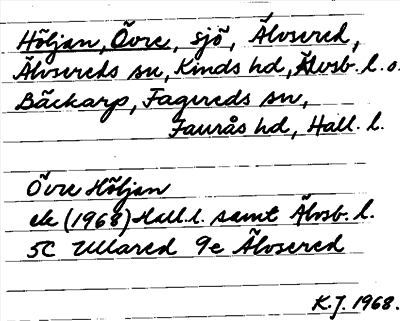 Höljan, Övre, sjö, Älvsered,
Älvsereds sn, Kinds hd, Älvsb. l. o.
Bäckarp, Fagereds sn,
Faurås hd, Hall. l.
Övre Höljan
ek (1968) Hall. l. samt Älvsb. l.
5C Ullared 9e Älvsered
K.J. 1968.